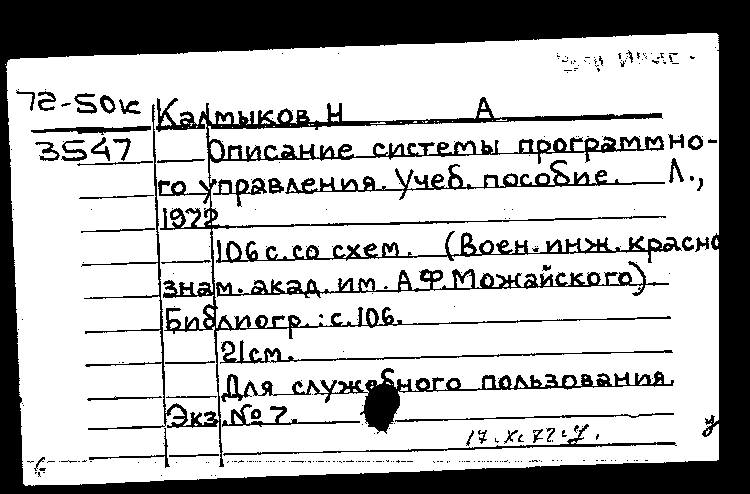 72-50к Калмыков, Н А
3547 Описание системы программно-
го управления. Учеб. пособие. Л.,
1972.
106 с. со схем. (Воен. инж. красно
знам. акад. им. А.Ф. Можайского).
Библиогр.: с. 106.
21 см.
Для служебного пользования.
Экз. № 7.
у